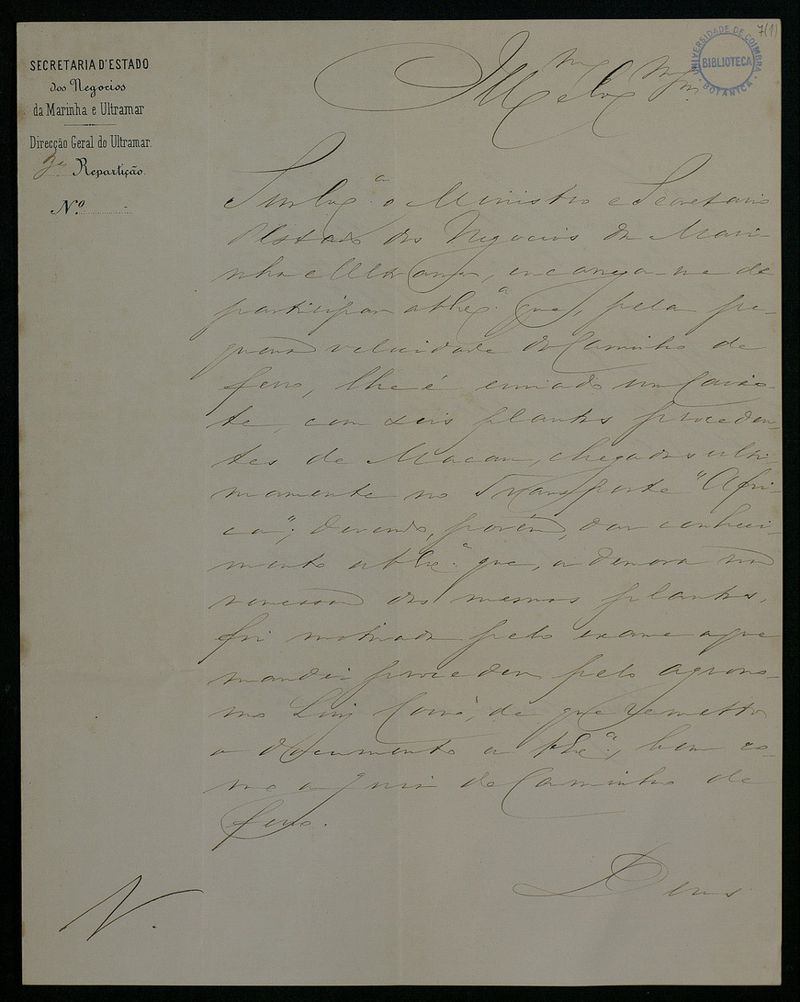 7(1)
UNIVERSIDADE DE COIMBRA
BIBLIOTECA
BOTANICA
SECRETARIA D'ESTADO
dos Negocios
da Marinha e Ultramar
Direcção Geral do Ultramar.
3ª Repartição.
N.º
Ill.mo e Ex.mo Snr.
Sua Ex.ª o Ministro e Secretario
d'Estado dos Negocios da Mari-
nha e Ultramar, encarrega-me de
participar a V. Ex.ª que, pela pe-
quena velocidade do Caminho de
ferro, lhe é enviado um Caixo-
te, com seis plantas proceden-
tes de Macau, chegadas ulti-
mamente no Transporte "Afri-
ca"; devendo, porém, dar conheci-
mento a V. Ex.ª que, a demora na
remessa das mesmas plantas,
foi motivada pelo exame a que
mandei proceder pelo agrono-
mo Luiz de que remetto
o documento a V. Ex.ª, bem co-
mo a guia do Caminho de
ferro.
Deus